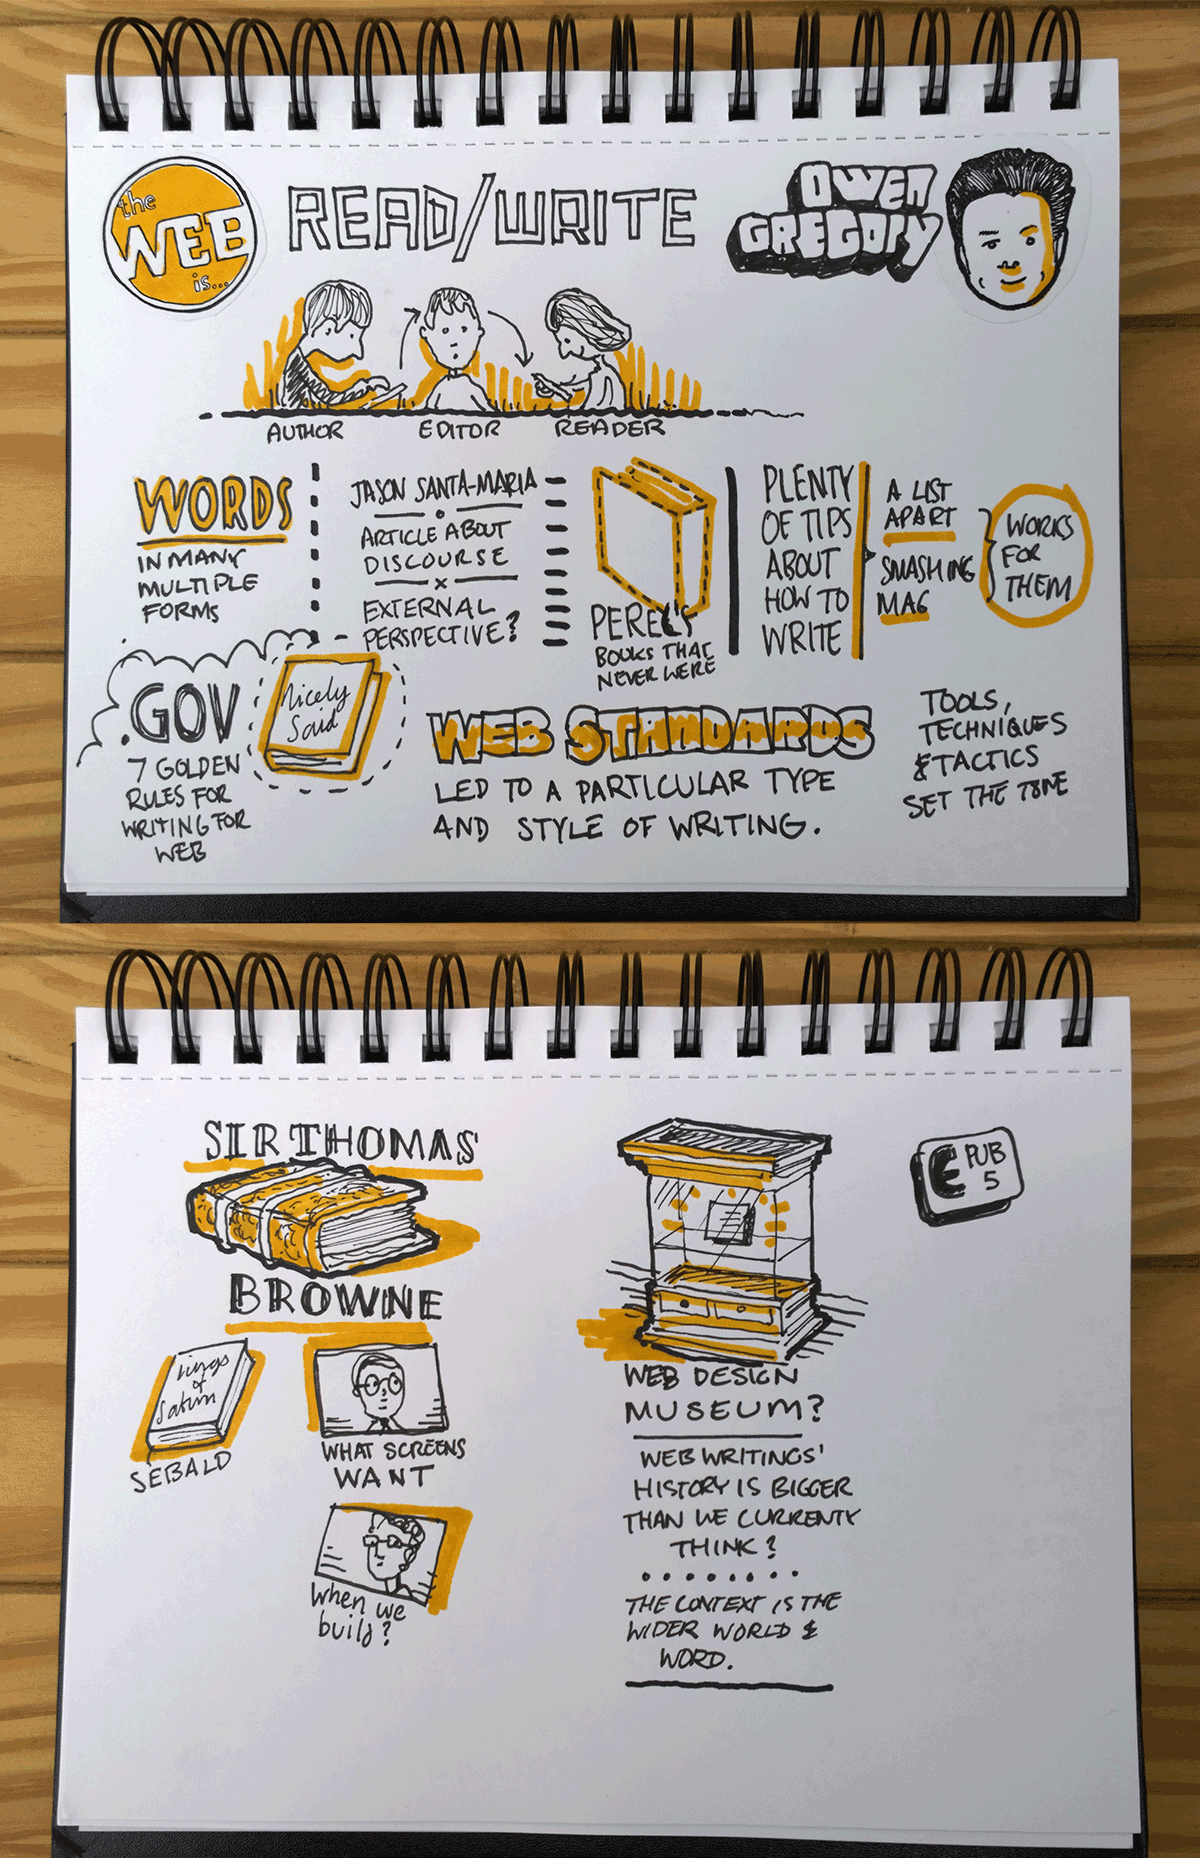 the
WEB
is...
READ/WRITE
OWEN
GREGORY
AUTHOR
EDITOR
READER
WORDS
IN MANY
MULTIPLE
FORMS
JASON SANTA-MARIA
ARTICLE ABOUT
DISCOURSE
EXTERNAL
PERSPECTIVE?
PEREC'S
BOOKS THAT
NEVER WERE
PLENTY
OF TIPS
ABOUT
HOW TO
WRITE
A LIST
APART
SMASHING
MAG
WORKS
FOR
THEM
.GOV
7 GOLDEN
RULES FOR
WRITING FOR
WEB
Nicely
Said
WEB STANDARDS
LED TO A PARTICULAR TYPE
AND STYLE OF WRITING.
TOOLS,
TECHNIQUES
& TACTICS
SET THE TONE
SIR THOMAS
BROWNE
rings
of
Saturn
SEBALD
WHAT SCREENS
WANT
When we
build?
WEB DESIGN
MUSEUM?
WEB WRITINGS'
HISTORY IS BIGGER
THAN WE CURRENTY
THINK?
THE CONTEXT IS THE
WIDER WORLD &
WORD.
E PUB
5